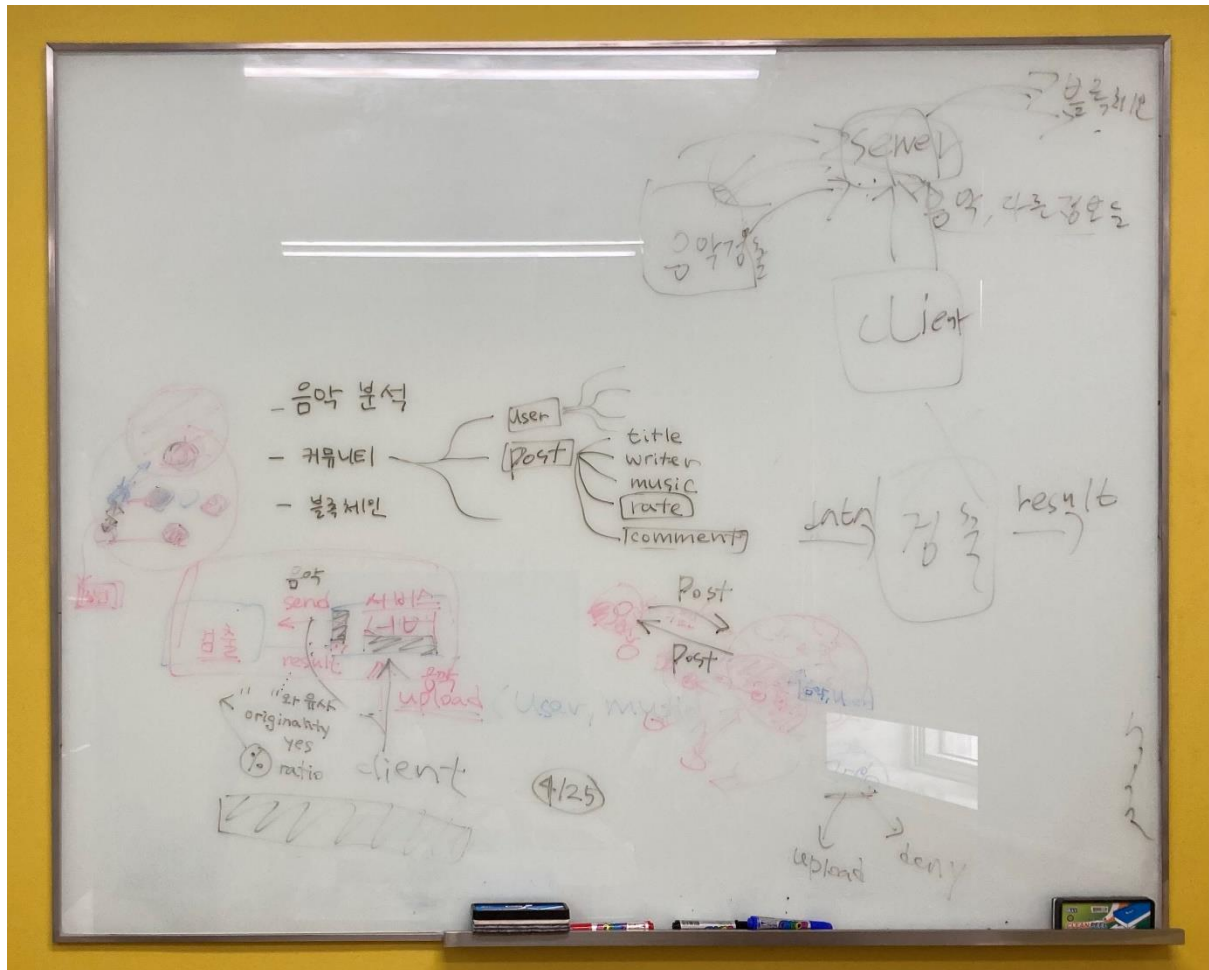 server
블록체인
음악, 다른 정보들
음악검출
client
- 음악 분석
- 커뮤니티
- 블록체인
user
post
title
writer
music
rate
comment
검출
result
음악
send
서비스
검출
result
음악
upload
(user, music
" "와 유사
originality
yes
% ratio
client
4/25
Post
Post
upload
deny